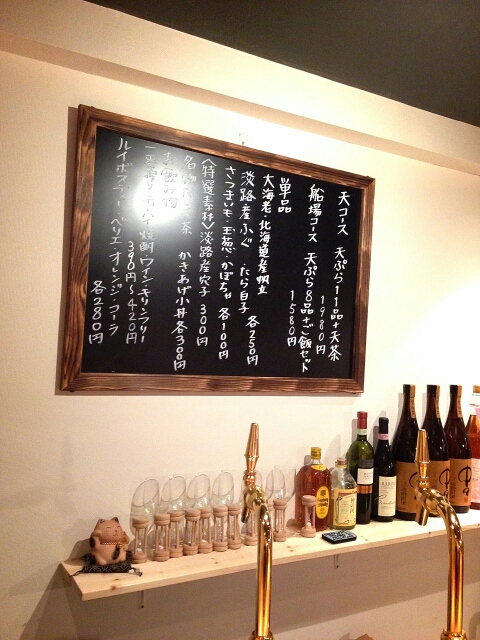 天コース 天ぷら11品+天茶
1980円
船場コース 天ぷら8品+ご飯セット
1580円
単品
大海老・北海道産帆立
淡路産ふぐ たら白子 各250円
さつまいも・玉葱・かぼちゃ 各100円
〈特選素材〉淡路産穴子 300円
茶 かきあげ小丼 各300円
お飲み物
チューハイ 焼酎 ワイン キリンフリー
390円〜420円
ルイボスティー ペリエ・オレンジ・コーラ
各280円